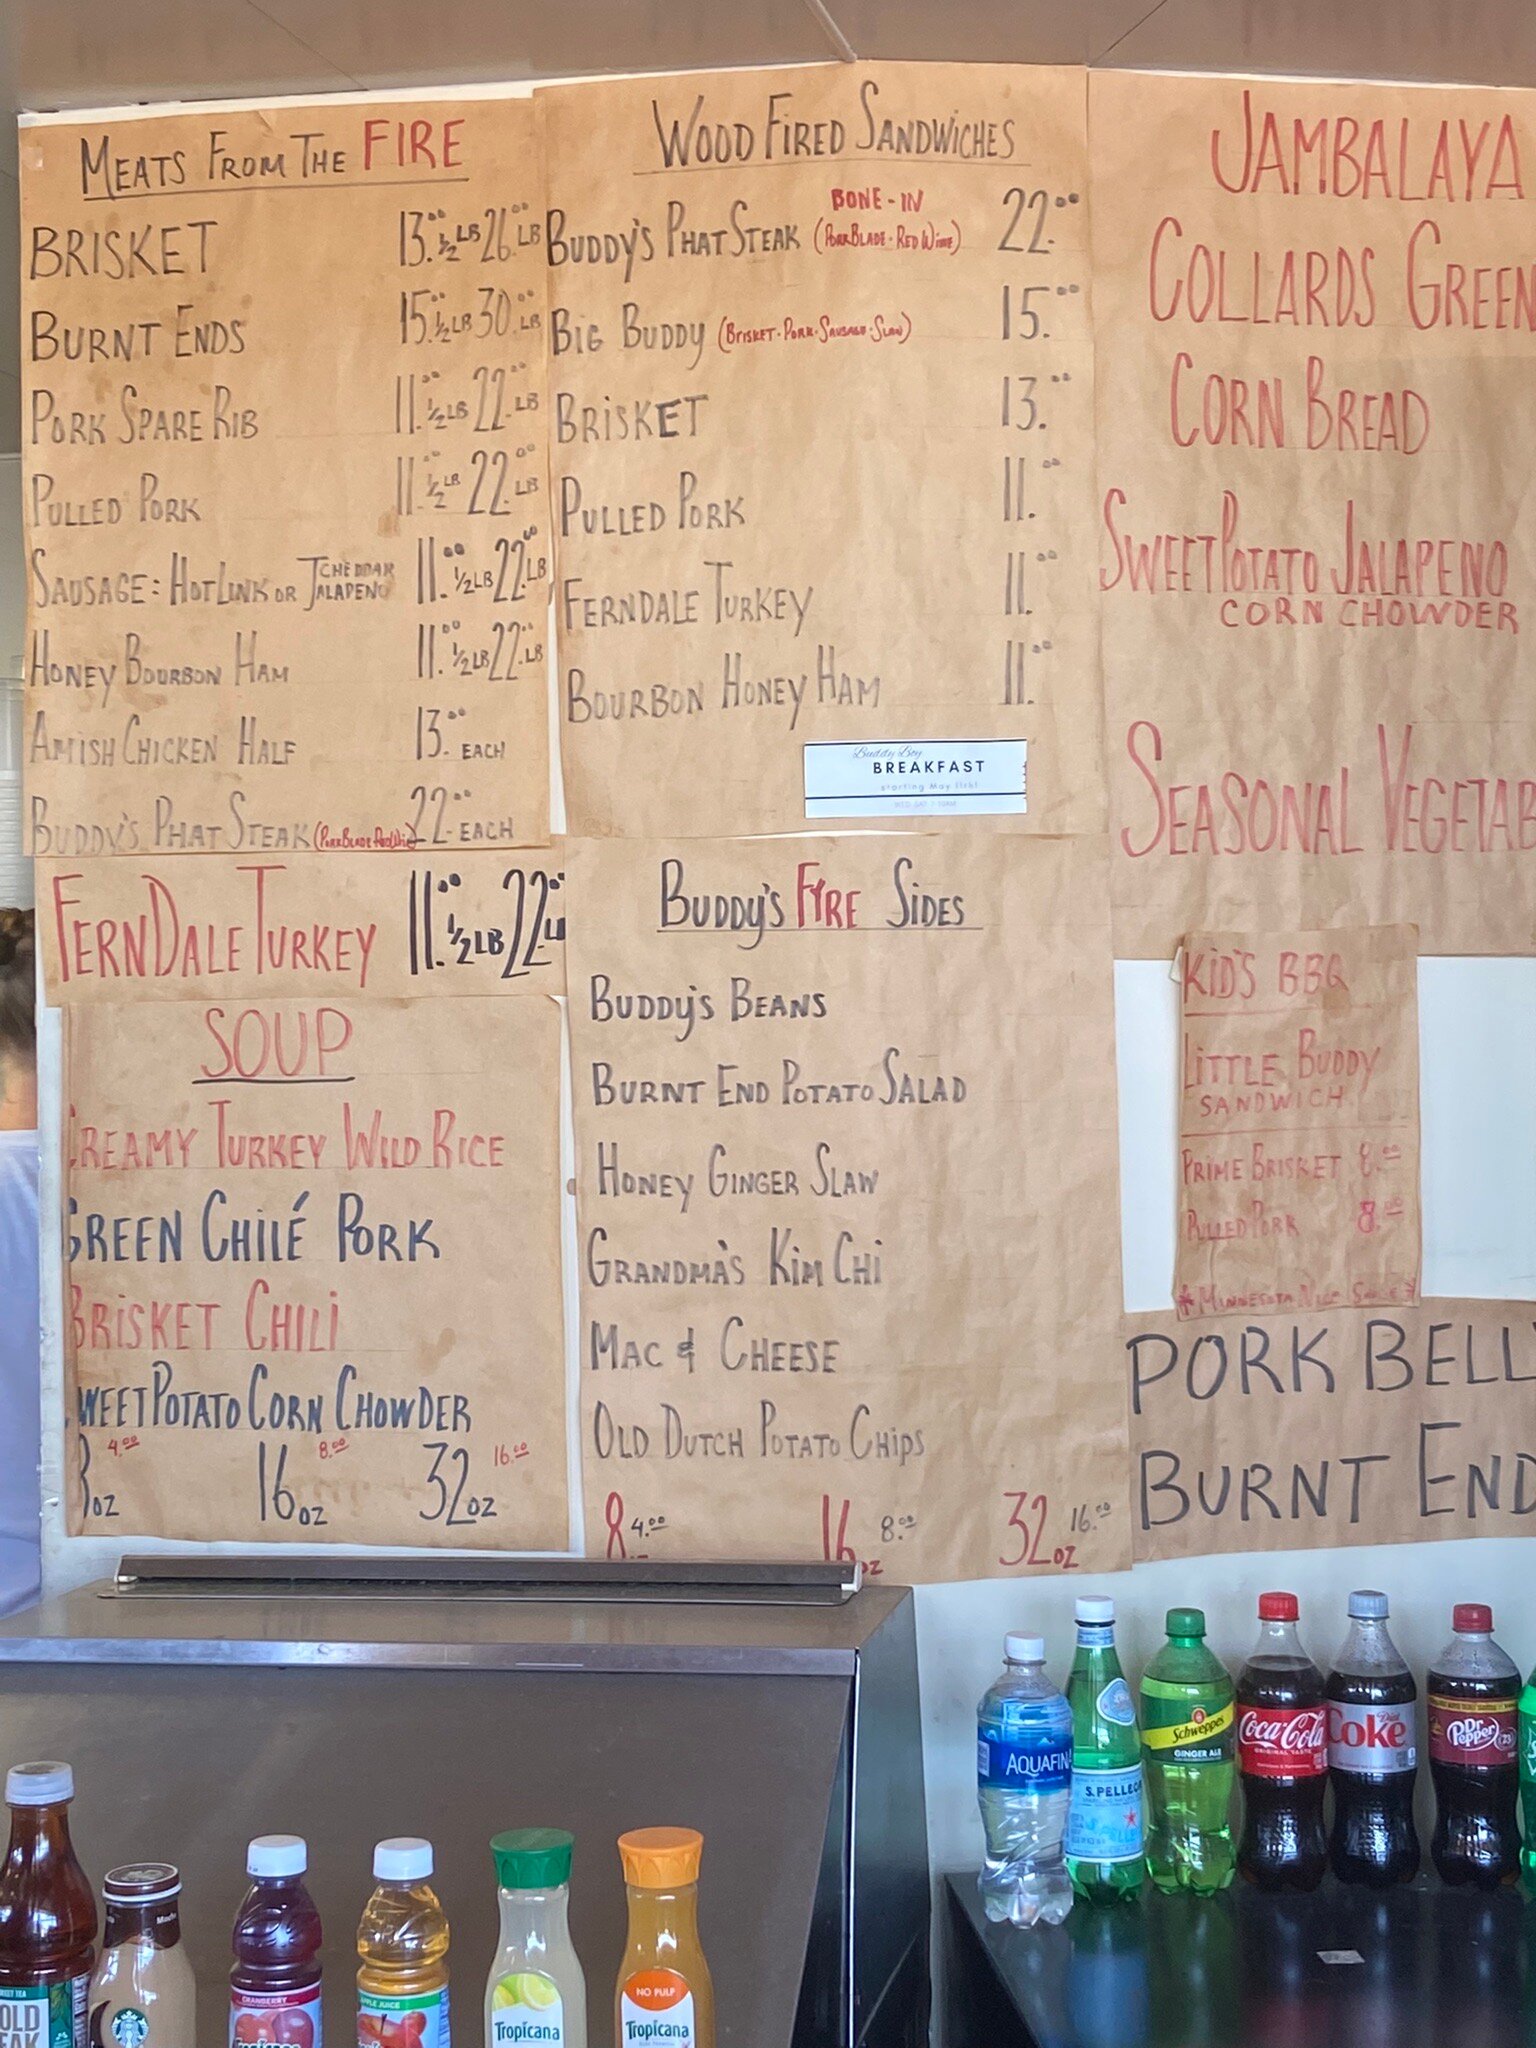 MEATS FROM THE FIRE
BRISKET 13.00 1/2 LB 26.00 LB
BURNT ENDS 15.00 1/2 LB 30.00 LB
PORK SPARE RIB 11.00 1/2 LB 22.00 LB
PULLED PORK 11.00 1/2 LB 22.00 LB
SAUSAGE: HOT LINK OR CHEDDAR JALAPENO 11.00 1/2 LB 22.00 LB
HONEY BOURBON HAM 11.00 1/2 LB 22.00 LB
AMISH CHICKEN HALF 13.00 EACH
BUDDY'S PHAT STEAK (PORK BLADE RED WINE) 22.00 EACH
FERNDALE TURKEY 11.00 1/2 LB 22.00 LB
SOUP
CREAMY TURKEY WILD RICE
GREEN CHILÉ PORK
BRISKET CHILI
SWEET POTATO CORN CHOWDER
8 OZ 4.00 16 OZ 8.00 32 OZ 16.00
WOOD FIRED SANDWICHES
BONE-IN
BUDDY'S PHAT STEAK (PORK BLADE · RED WINE) 22.00
BIG BUDDY (BRISKET · PORK · SAUSAGE · SLAW) 15.00
BRISKET 13.00
PULLED PORK 11.00
FERNDALE TURKEY 11.00
BOURBON HONEY HAM 11.00
Buddy Boy
BREAKFAST
starting May 11th!
WED-SAT 7-10AM
BUDDY'S FYRE SIDES
BUDDY'S BEANS
BURNT END POTATO SALAD
HONEY GINGER SLAW
GRANDMA'S KIM CHI
MAC & CHEESE
OLD DUTCH POTATO CHIPS
8 4.00 16 OZ 8.00 32 OZ 16.00
JAMBALAYA
COLLARDS GREEN
CORN BREAD
SWEET POTATO JALAPENO
CORN CHOWDER
SEASONAL VEGETAB
KID'S BBQ
LITTLE BUDDY
SANDWICH
PRIME BRISKET 8.00
PULLED PORK 8.00
*MINNESOTA NICE SAUCE*
PORK BELLY
BURNT END
AQUAFINA
S.PELLEGRINO
Schweppes
GINGER ALE
Coca-Cola
ORIGINAL TASTE
Diet
Coke
Dr Pepper
23
Mocha
CRANBERRY
Tropicana
APPLE JUICE
Tropicana
NO PULP
Tropicana